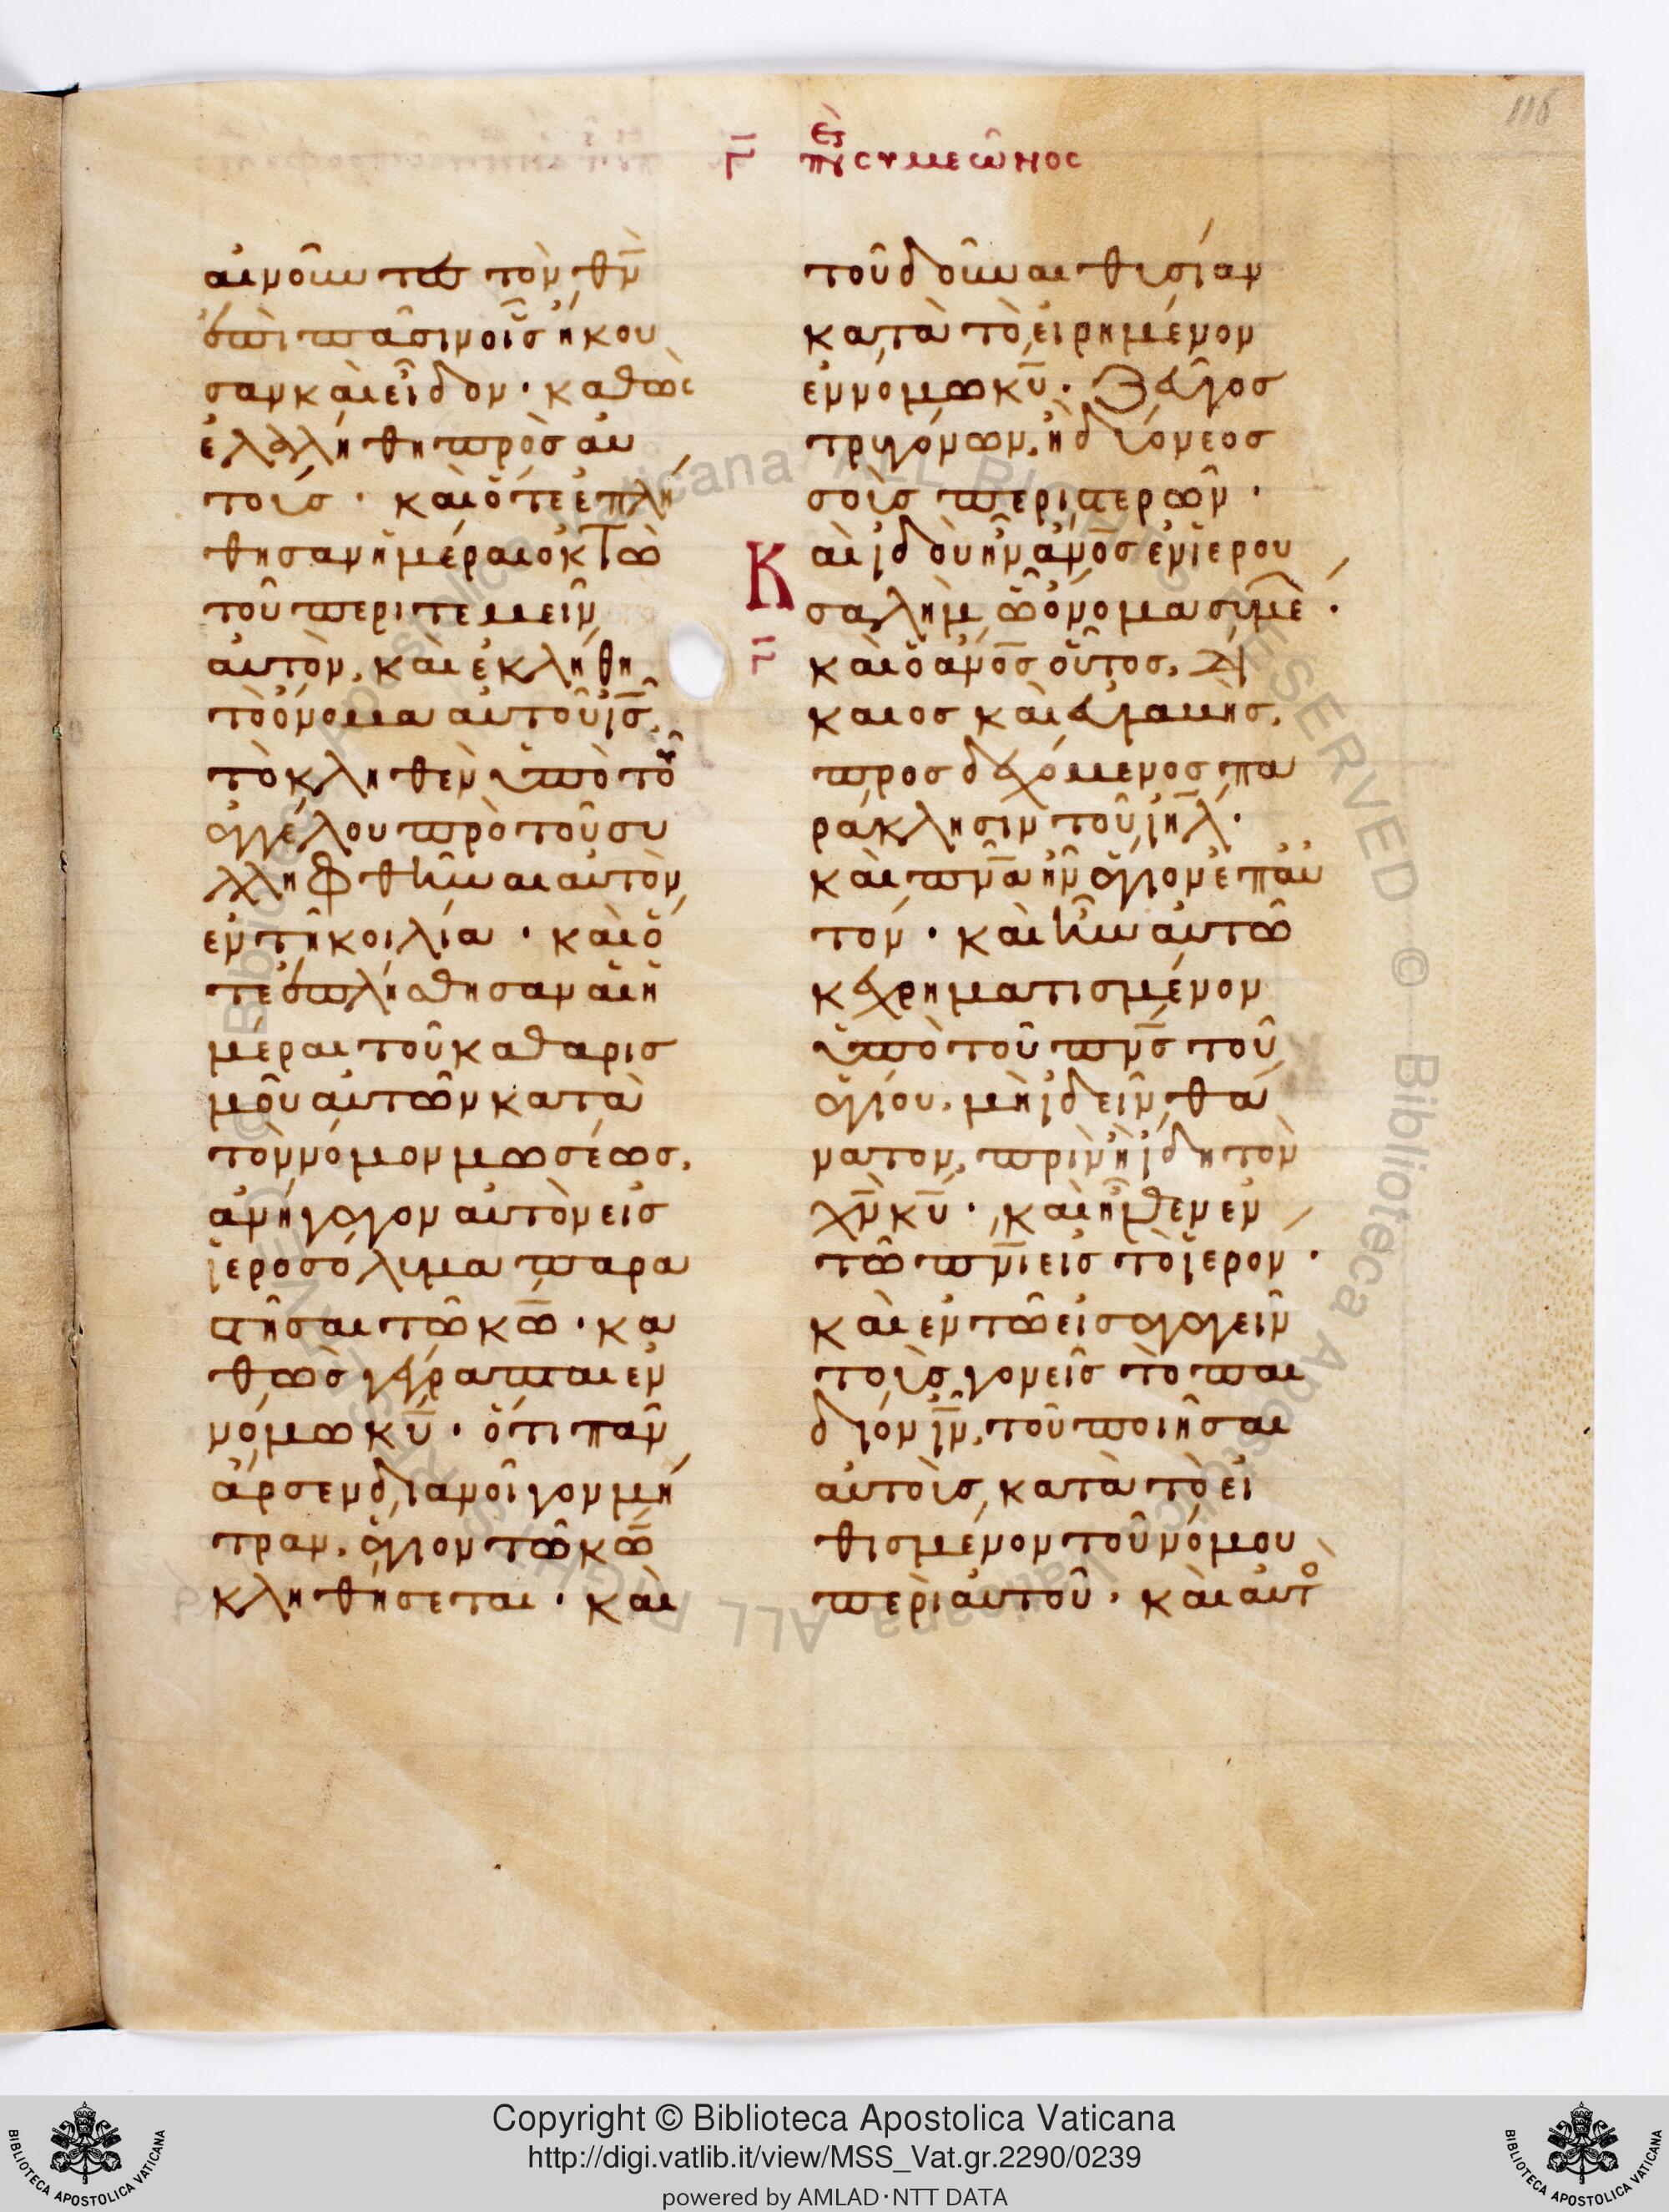 116
γ̅ εἰς
τ̀ συμεῶνος
αἰνοῦντες τὸν θ̅ν̅
ἐπὶ πᾶσιν οἷς ἤκου
σαν καὶ εἶδον · καθὼς
ἐλαλήθη πρὸς αὐ
τοίς · καὶ ὅτε ἐπλή
θησαν ἡμέραι ὀκτὼ
τοῦ περιτεμεῖν
αὐτὸν, καὶ ἐκλήθη
τὸ ὄνομα αὐτοῦ ι̅ς̅,
τὸ κληθὲν ὑπὸ τοῦ
ἀγγέλου πρὸ τοῦ συ
λληφθῆναι αὐτὸν
ἐν τῆ κοιλία · καὶ ὅ
τε ἐπλήσθησαν αἱ ἡ
μέραι τοῦ καθαρισ
μοῦ αὐτῶν κατὰ
τὸν νόμον μωσέως,
ἀνήγαγον αὐτὸν εἰς
ἱεροσόλυμα παρα
στῆσαι τῶ κ̅ω̅ · κα
θὼς γέγραπται ἐν
νόμω κ̅υ̅ · ὅτι πᾶν
ἄρσεν διανοῖγον μή
τραν, ἅγιον τῶ κ̅ω̅
κληθήσεται · καὶ
τοῦ δοῦναι θυσίαν
κατὰ τὸ εἰρημένον
ἐν νόμω κ̅υ̅ · ζεῦγος
τρυγόνων, ἢ δύο νεοσ
σοὺς περιστερῶν ·
Καὶ ἰδοὺ ἦν α̅ν̅ο̅ς̅ ἐν ἱερου
σαλήμ, ῶ ὄνομα συμεώ ·
γ̅ καὶ ὁ α̅ν̅ο̅ς̅ οὗτος, δί
καιος καὶ εὐλαβὴς,
προσδεχόμενος πα
ράκλησιν τοῦ ι̅η̅λ̅ ·
καὶ π̅ν̅α̅ ἦν ἅγιον ἐπ αὐ
τόν · καὶ ἦν αὐτῶ
κεχρηματισμένον
ὑπὸ τοῦ π̅ν̅ς̅ τοῦ
ἁγίου, μὴ ἰδεῖν θά
νατον, πρὶν ἢ ἴδη τὸν
χ̅ν̅ κ̅υ̅ · καὶ ἦλθεν ἐν
τῶ π̅ν̅ι̅ εἰς τὸ ἱερον ·
καὶ ἐν τῶ εἰσαγαγεῖν
τοὺς γονεῖς τὸ παι
δίον ι̅ν̅, τοῦ ποιῆσαι
αὐτοὺς κατὰ τὸ εἰ
θισμένον τοῦ νόμου
περὶ αὐτοῦ, καὶ αὐτο
Copyright © Biblioteca Apostolica Vaticana
http://digi.vatlib.it/view/MSS_Vat.gr.2290/0239
powered by AMLAD·NTT DATA
BIBLIOTECA APOSTOLICA VATICANA
BIBLIOTECA APOSTOLICA VATICANA